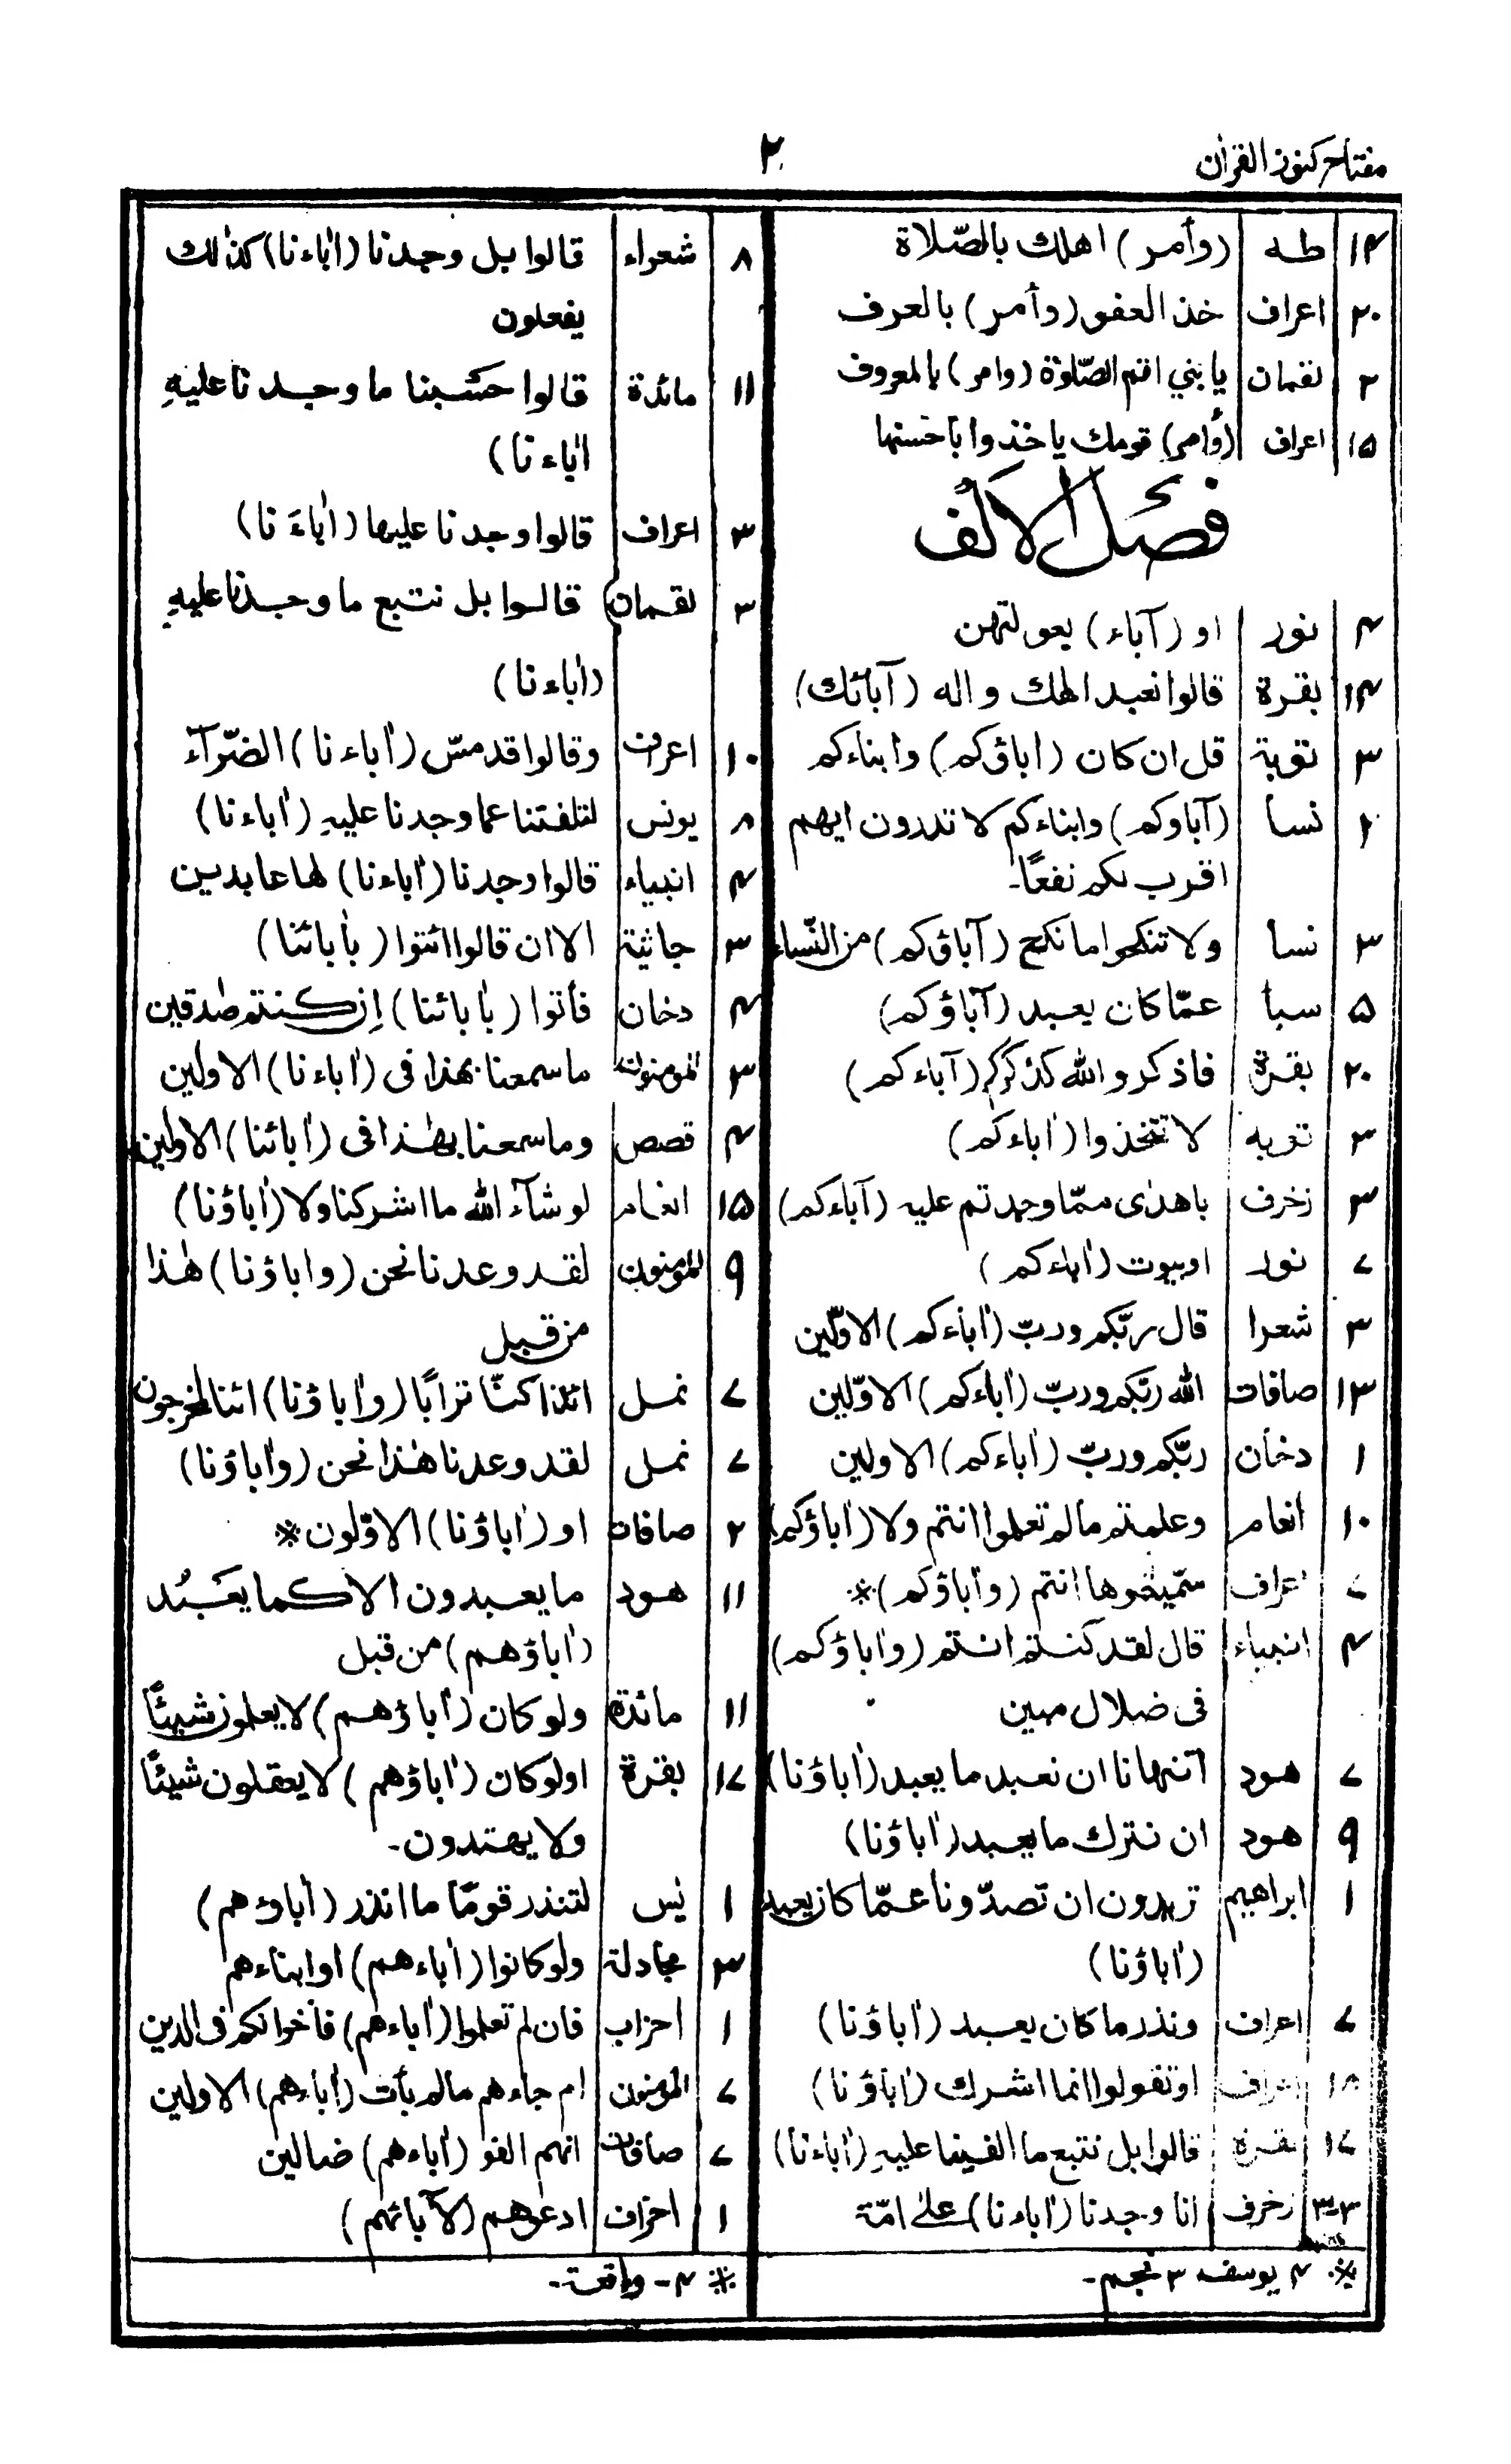 مفتاح كنوز القرآن
۲
۱۴ طه (وأمر) اهلك بالصّلاة
۲۰ اعراف خذ العفو (وأمر) بالعرف
۲ لقمان يا بني اقم الصّلوٰة (وامر) بالمعروف
۱۵ اعراف (وأمر) قومك ياخذوا بأحسنها
فصل الالف
۴ نور او (آباء) بعولتهن
۱۴ بقرة قالوا نعبد الهك واله (آبائك)
۳ توبة قل ان كان (اباؤكم) وابناءكم
۲ نسا (آباوكم) وابناءكم لا تدرون ايهم
اقرب لكم نفعًا-
۳ نسا ولا تنكحوا ما نكح (آباؤكم) من النّساء
۵ سبأ عمّا كان يعبد (آباؤكم)
۲۰ بقرة فاذكروالله كذكركم (آباءكم)
۳ توبه لا تتخذوا (اٰباءكم)
۳ زخرف باهدٰى ممّا وجدتم عليه (آباءكم)
۷ نور اوبيوت (اٰباءكم)
۳ شعرا قال ربّكم وربّ (اٰباءكم) الاوّلين
۱۳ صافات الله ربّكم وربّ (اٰباءكم) الاوّلين
۱ دخان ربّكم وربّ (اٰباءكم) الاولين
۱۰ انعام وعلمتم مالم تعلموا انتم ولا (اٰباؤكم)
۷ اعراف سمّيتموها انتم (واٰباؤكم)※
۴ انبياء قال لقد كنتم انتم (واٰباؤكم)
فى ضلال مبين
۷ هود أتنهانا ان نعبد ما يعبد (اٰباؤنا)
۹ هود ان نترك ما يعبد (اٰباؤنا)
۱ ابراهيم تريدون ان تصدّونا عمّا كان يعبد
(اٰباؤنا)
۷ اعراف ونذر ما كان يعبد (اٰباؤنا)
اعراف او تقولوا انما اشرك (اٰباؤنا)
۱۷ بقرة قالوا بل نتبع ما الفينا عليهِ (اٰباءنا)
۳-۳ زخرف انا وجدنا (اٰباءنا) علىٰ امّة
※ ۴ يوسف ۳ نجم-
۸ شعراء قالوا بل وجدنا (اٰباءنا) كذٰلك
يفعلون
۱۱ مائدة قالوا حسبنا ما وجدنا عليهِ
اٰباءنا)
۳ اعراف قالوا وجدنا عليها (اٰباءَنا)
۳ لقمان قالوا بل نتبع ما وجدنا عليهِ
(اٰباءنا)
۱۰ اعراف وقالوا قد مسّ (اٰباءنا) الضّرآء
۸ يونس لتلفتنا عما وجدنا عليهِ (اٰباءنا)
۴ انبياء قالوا وجدنا (اٰباءنا) لها عابدين
۳ جاثية الا ان قالوا ائتوا (باٰبائنا)
۴ دخان فأتوا (باٰبائنا) اِن كنتم صٰدقين
۳ المؤمنون ما سمعنا بهذا فى (اٰباءنا) الاولين
۴ قصص وما سمعنا بهٰذا فى (اٰبائنا) الاولين
۱۵ انعام لو شآء الله ما اشركنا ولا (اٰباؤنا)
۹ المؤمنون لقد وعدنا نحن (واباؤنا) هٰذا
من قبل
۷ نمل ائذا كنّا ترابًا (واٰباؤنا) ائنا لمخرجون
۷ نمل لقد وعدنا هٰذا نحن (واٰباؤنا)
۲ صافات او (اٰباؤنا) الاوّلون※
۱۱ هود ما يعبدون الا كما يعبُد
(اٰباؤهم) من قبل
۱۱ مائدة ولو كان (اٰباؤهم) لا يعلمون شيئًا
۱۷ بقرة اولو كان (اٰباؤهم) لا يعقلون شيئًا
ولا يهتدون-
۱ يٰس لتنذر قومًا ما انذر (اٰباؤهم)
۳ مجادلة ولو كانوا (اٰباءهم) او ابناءهم
۱ احزاب فان لم تعلموا (اٰباءهم) فأخوانكم فى الدين
۷ المؤمنون ام جاءهم مالم يأت (اٰباءهم) الاولين
۷ صافات انهم الفو (اٰباءهم) ضالين
۱ احزاف ادعوهم (لآبائهم)
※ ۴- واقعة-